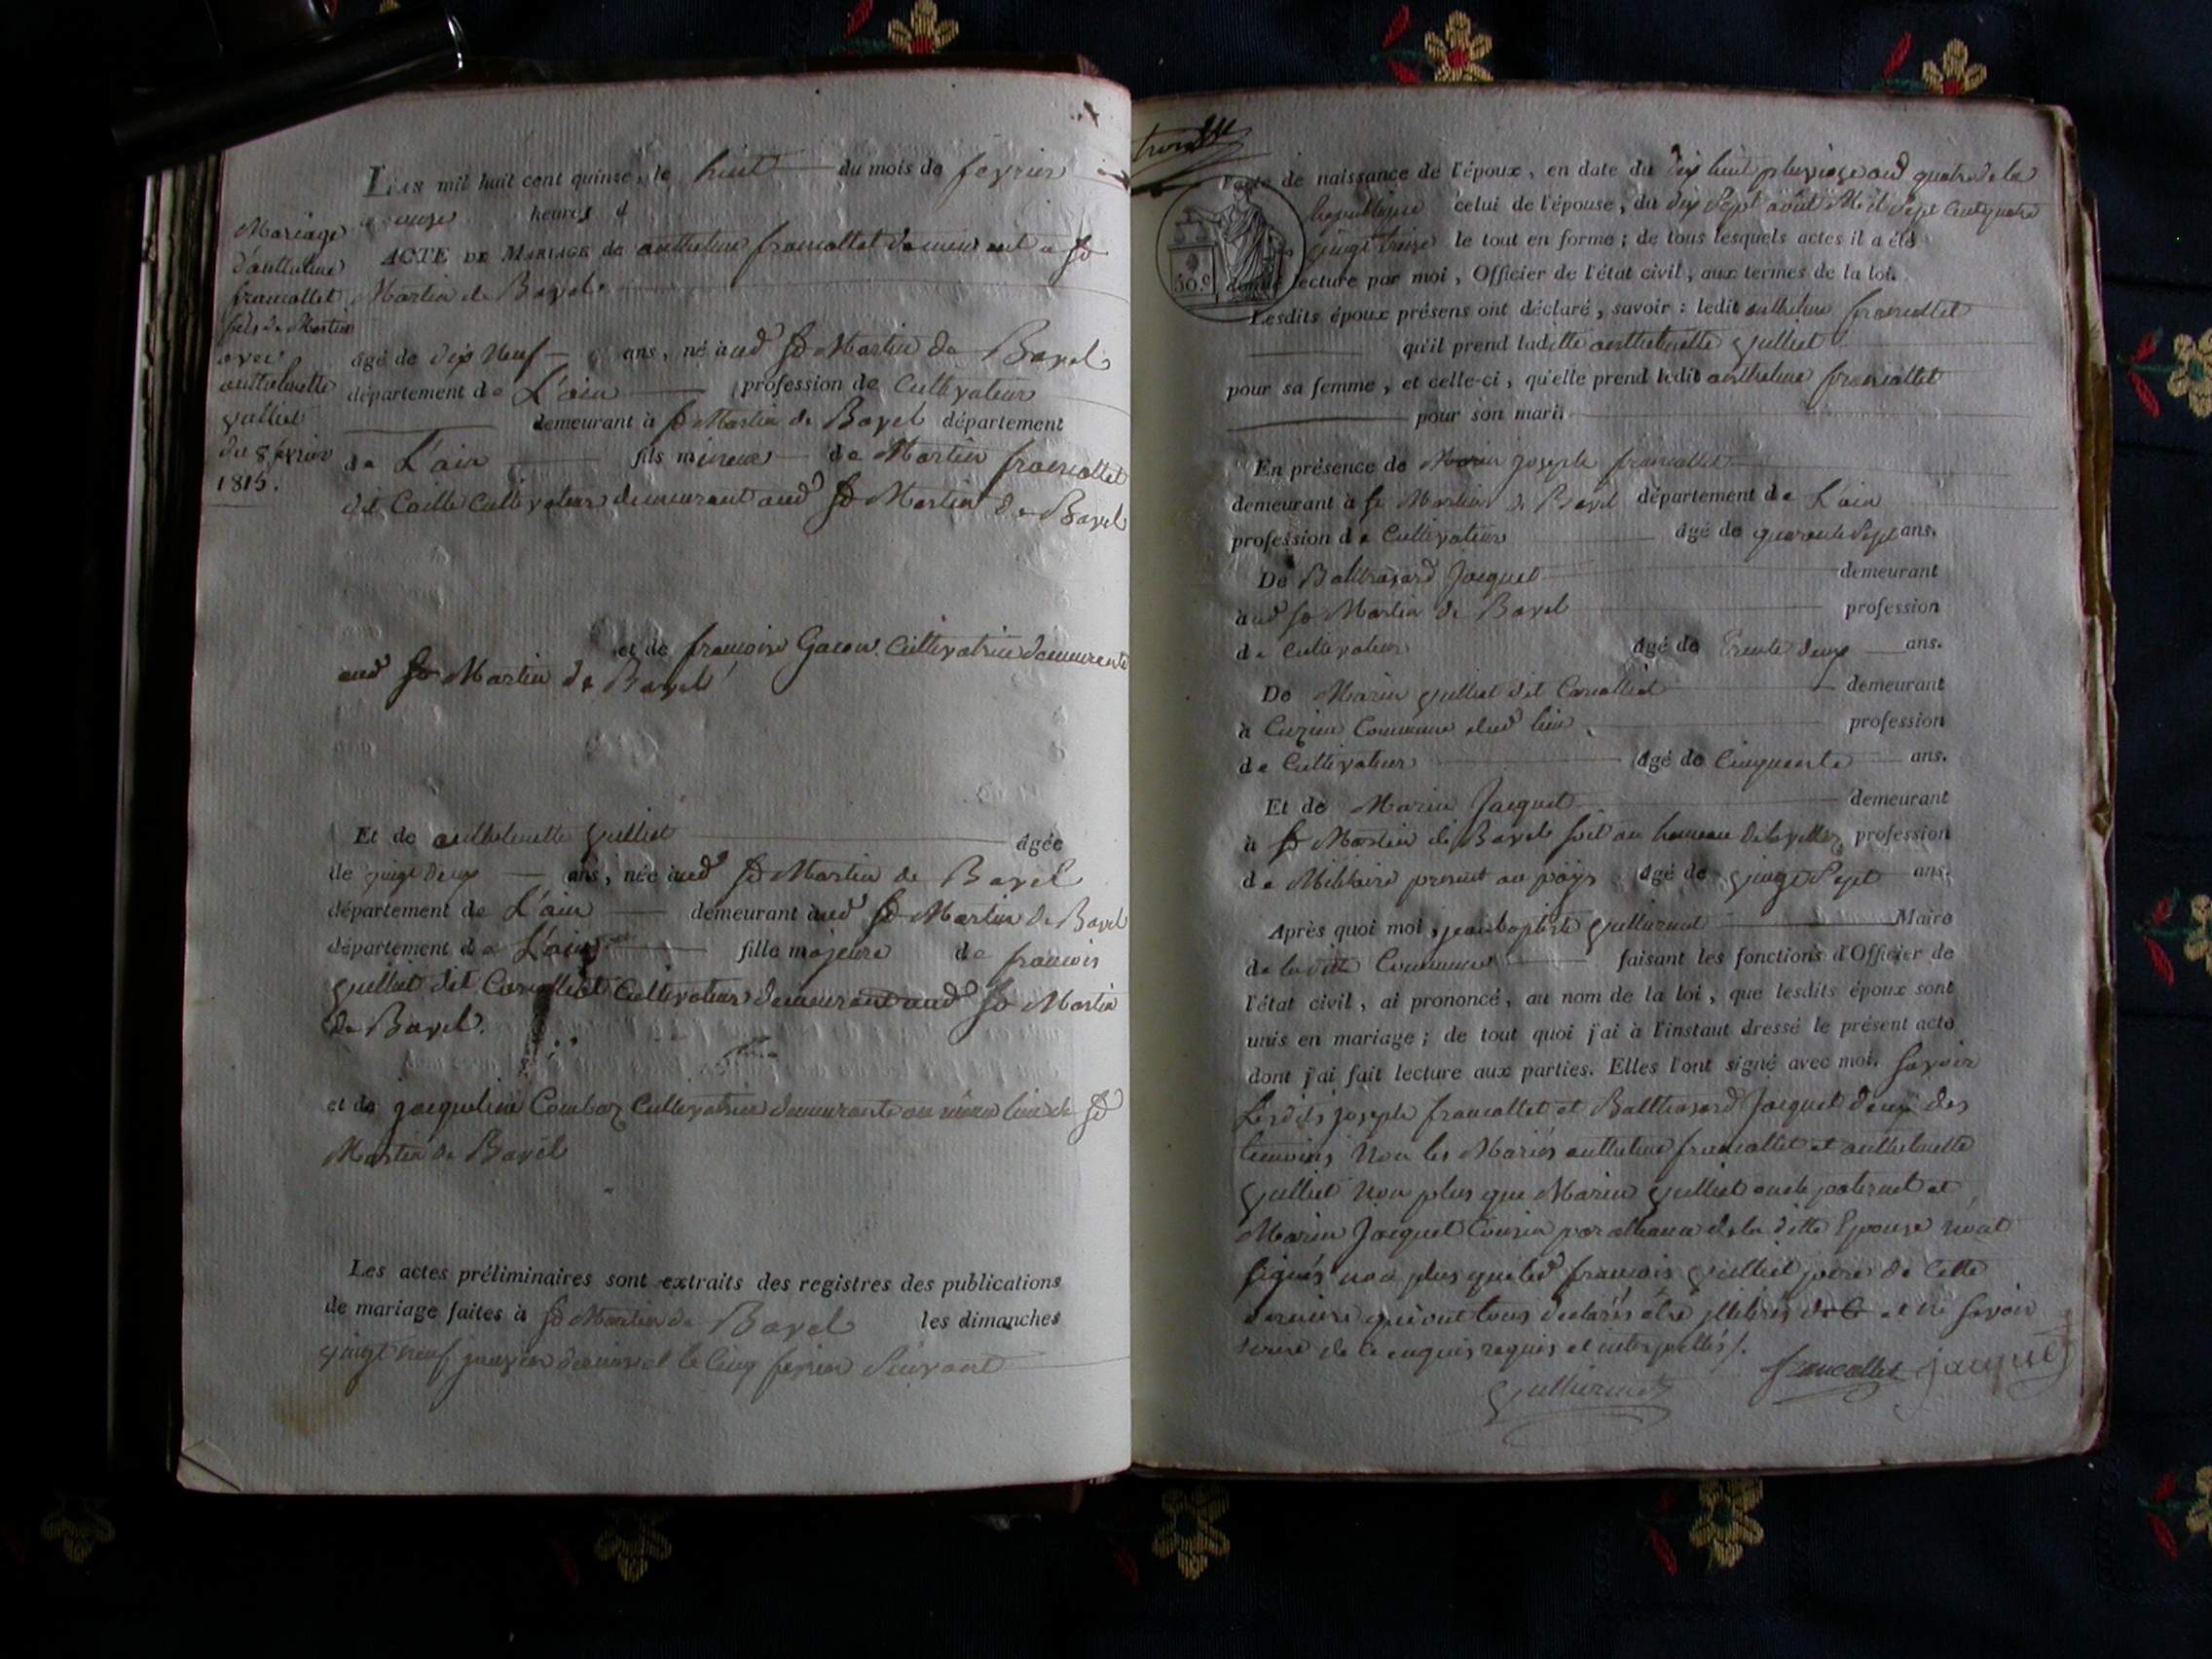 L'an mil huit cent quinze, le huit du mois de fevrier
a onze heures d
Mariage
d'anthelme
francallet
fils de Martin
avec
anthelmette
Julliet
du 8 février
1815.
ACTE DE MARIAGE de anthelme francallet demeurant a St
Martin de Bavel.
âgé de dix Neuf ans, né aud St Martin de Bavel
département de L'ain profession de Cultivateur
demeurant à St Martin de Bavel département
de L'ain fils mineur de Martin francallet
dit Caille Cultivateur demeurant aud St Martin de Bavel
et de françoise Gacon Cultivatrice demeurante
aud St Martin de Bavel
Et de anthelmette Julliet âgée
de vingt deux ans, née aud St Martin de Bavel
département de L'ain demeurant aud St Martin de Bavel
département de L'ain fille majeure de francois
Julliet dit Cultivateur demeurant aud St Martin
de Bavel.
et de jacqueline Combaz Cultivatrice demeurante au même lieu de St
Martin de Bavel
Les actes préliminaires sont extraits des registres des publications
de mariage faites à St Martin de Bavel les dimanches
vingt neuf janvier dernier et le Cinq fevrier Suivant
30.c
l'acte de naissance de l'époux, en date du dix huit pluviose and quatre de la
Republique celui de l'épouse, du dix Sept août Mil Sept Cent quatre
vingt treize le tout en forme ; de tous lesquels actes il a été
donné lecture par moi, Officier de l'état civil, aux termes de la loi.
Lesdits époux présens ont déclaré, savoir : ledit anthelme francallet
qu'il prend laditte anthelmette Julliet
pour sa femme, et celle-ci, qu'elle prend ledit anthelme francallet
pour son mari.
En présence de joseph francallet
demeurant à St Martin de Bavel département de L'ain
profession de Cultivateur âgé de quarante Sept ans.
De Balthasard Jacquet demeurant
aud St Martin de Bavel profession
de Cultivateur âgé de trente deux ans.
De Marin Julliet dit demeurant
à Commune dud lieu profession
de Cultivateur âgé de Cinquante ans.
Et de Marin Jacquet demeurant
à St Martin de Bavel soit au hameau de profession
de Militaire present au pays âgé de vingt Sept ans.
Après quoi moi, jean baptiste Maire
de laditte Commune faisant les fonctions d'Officier de
l'état civil, ai prononcé, au nom de la loi, que lesdits époux sont
unis en mariage ; de tout quoi j'ai à l'instant dressé le présent acte
dont j'ai fait lecture aux parties. Elles l'ont signé avec moi. Savoir
Lesdits joseph francallet et Balthasard Jacquet deux des
temoins Non les Mariés anthelme francallet et anthelmette
Julliet Non plus que Marin Julliet oncle paternel et
Marin Jacquet Cousin par alliance de la ditte Epouse n'ont
signés non plus que led francois Julliet pere de Cette
derniere qui ont tous declarés etre illitrés et ne Savoir
de ce enquis requis et interpellés.
francallet jacquet